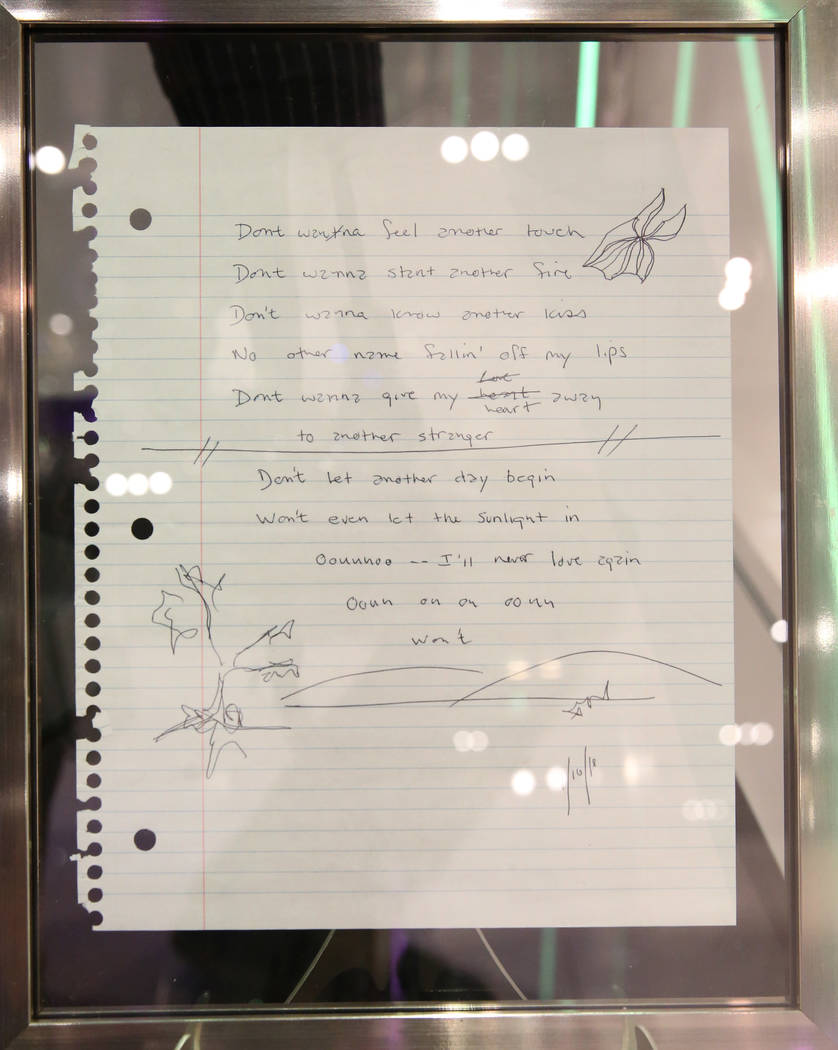 Dont wanna feel another touch
Dont wanna start another fire
Don't wanna know another kiss
No other name fallin' off my lips
Love
Dont wanna give my heart away
heart
to another stranger
Don't let another day begin
Won't even let the sunlight in
Oouuhoo -- I'll never love again
Oouh oh oh oo uh
Won't
/10/18